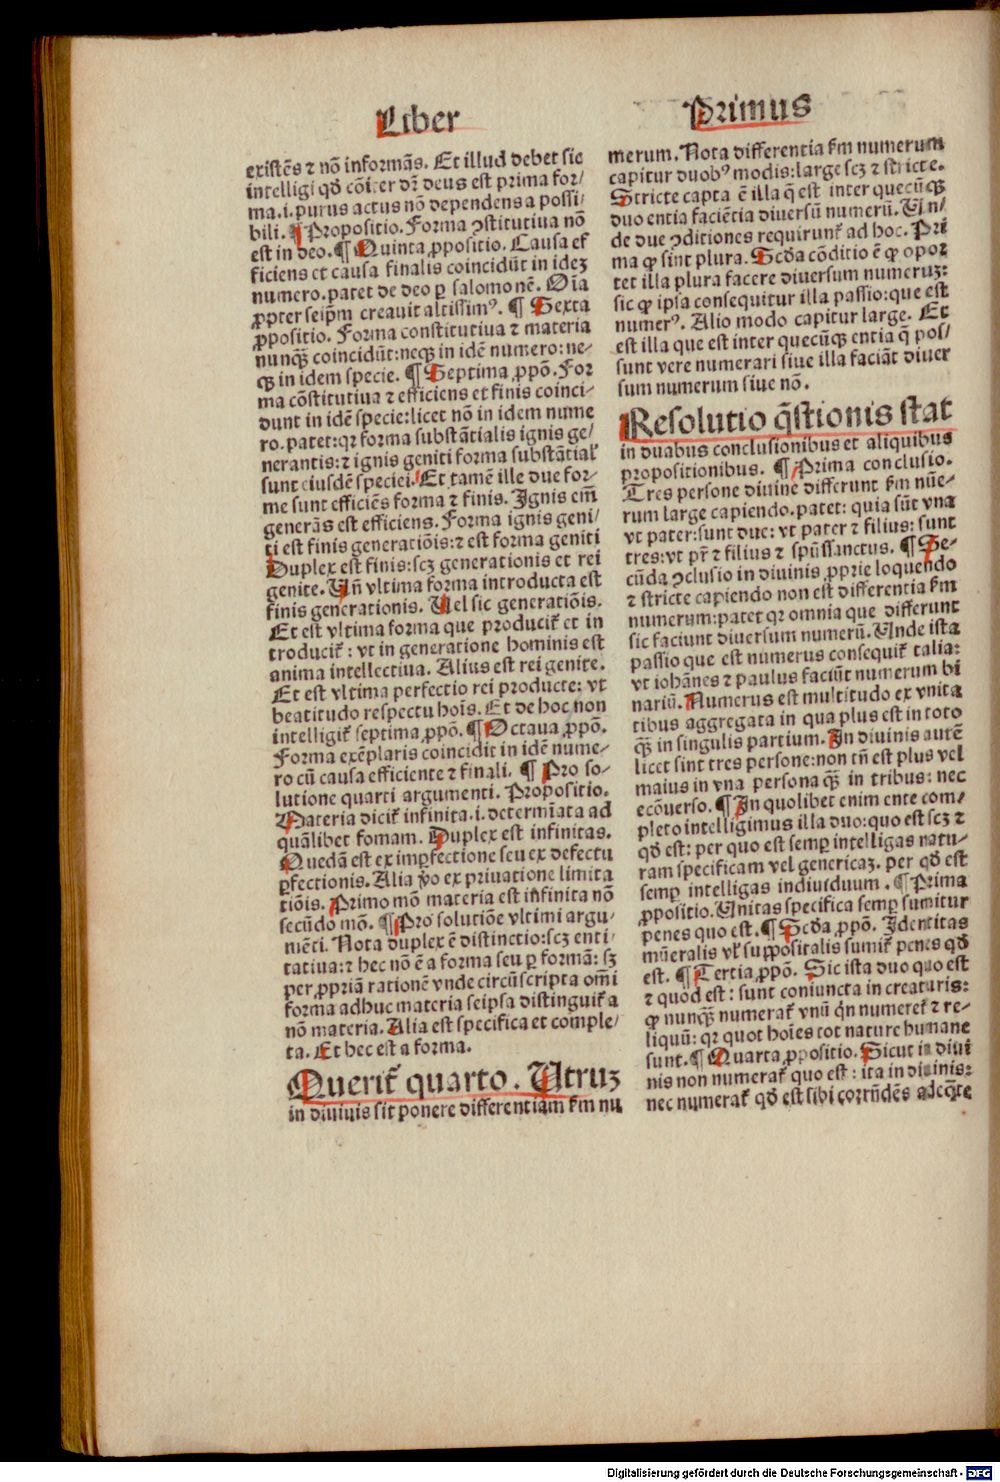 Liber
Primus
existēs ⁊ nō informās. Et illud debet sic
intelligi qđ cōiter dr̄ deus est prima for/
ma.i.purus actus nō dependens a possi/
bili. ¶ Propositio. Forma ꝯstitutiua nō
est in deo. ¶ Quinta ꝓpositio. Causa ef
ficiens et causa finalis coincidūt in idez
numero.patet de deo ꝑ salomonē. Oīa
ꝓpter seipm̄ creauit altissimꝰ. ¶ Sexta
ꝓpositio. Forma constitutiua ⁊ materia
nunq̄ꝫ coincidūt:neqꝫ in idē numero:ne-
qꝫ in idem specie. ¶ Septima ꝓpō. For
ma cōstitutiua ⁊ efficiens et finis coinci-
dunt in idē specie:licet nō in idem nume
ro.patet:qꝛ forma substātialis ignis ge/
nerantis:⁊ ignis geniti forma substātialꝭ
sunt eiusdē speciei. Et tamē ille due for-
me sunt efficiēs forma ⁊ finis. Ignis em̄
generās est efficiens. Forma ignis geni/
ti est finis generatiōis:⁊ est forma geniti
Duplex est finis:scꝫ generationis et rei
genite. Vn̄ vltima forma introducta est
finis generationis. Vel sic generatiōis.
Et est vltima forma que producit᷑ et in
troducit᷑ : vt in generatione hominis est
anima intellectiua. Alius est rei genite.
Et est vltima perfectio rei producte: vt
beatitudo respectu hoīs. Et de hoc non
intelligit᷑ septima ꝓpō. ¶ Octaua ꝓpō.
Forma exēplaris coincidit in idē nume-
ro cū causa efficiente ⁊ finali. ¶ Pro so-
lutione quarti argumenti. Propositio.
Materia dicit᷑ infinita.i.determīata ad
quālibet fomam. Duplex est infinitas.
Quedā est ex imꝑfectione seu ex defectu
ꝑfectionis. Alia ꝟo ex priuatione limita
tiōis. Primo mō materia est infinita nō
secūdo mō. ¶ Pro solutiōe vltimi argu-
mēti. Nota duplex ē distinctio:scꝫ enti-
tatiua:⁊ hec nō ē a forma seu ꝑ formā: sꝫ
per ꝓpriā rationē vnde circūscripta om̄i
forma adhuc materia seipsa distinguit᷑ a
nō materia. Alia est specifica et comple/
ta. Et hec est a forma.
Querit᷑ quarto. Vtruꝫ
in diuiuis sit ponere differentiam ẜm nu
merum. Nota differentia ẜm numerum
capitur duobꝰ modis:large scꝫ ⁊ stricte.
Stricte capta ē illa q̄ est inter quecūqꝫ
duo entia faciētia diuersū numerū. Vn/
de due ꝯditiones requirunt᷑ ad hoc. Pri
ma ꝙ sint plura. Scđa cōditio ē ꝙ opor
tet illa plura facere diuersum numeruꝫ:
sic ꝙ ipsa consequitur illa passio:que est
numerꝰ. Alio modo capitur large. Et
est illa que est inter quecūqꝫ entia q̄ pos/
sunt vere numerari siue illa faciāt diuer
sum numerum siue nō.
Resolutio q̄stionis stat
in duabus conclusionibus et aliquibus
propositionibus. ¶ Prima conclusio.
Tres persone diuine differunt ẜm nūe-
rum large capiendo.patet: quia sūt vna
vt pater:sunt due: vt pater ⁊ filius: sunt
tres:vt pr̄ ⁊ filius ⁊ spūssanctus. ¶ Se-
cūda ꝯclusio in diuinis ꝓprie loquendo
⁊ stricte capiendo non est differentia ẜm
numerum:patet qꝛ omnia que differunt
sic faciunt diuersum numerū. Vnde ista
passio que est numerus consequit᷑ talia:
vt iohānes ⁊ paulus faciūt numerum bi
nariū. Numerus est multitudo ex vnita
tibus aggregata in qua plus est in toto
qꝫ̄ in singulis partium. In diuinis autē
licet sint tres persone:non tn̄ est plus vel
maius in vna persona qꝫ̄ in tribus: nec
ecōuerso. ¶ In quolibet enim ente com/
pleto intelligimus illa duo:quo est scꝫ ⁊
qđ est: per quo est semꝑ intelligas natu-
ram specificam vel genericaꝫ. per qđ est
semꝑ intelligas indiuiduum. ¶ Prima
ꝓpositio. Vnitas specifica semꝑ sumitur
penes quo est. ¶ Scđa ꝓpō. Identitas
nūeralis vl᷑ suppositalis sumit᷑ penes qđ
est. ¶ Tertia ꝓpō. Sic ista duo quo est
⁊ quod est: sunt coniuncta in creaturis:
ꝙ nunqꝫ̄ numerat᷑ vnū qn̄ numeret᷑ ⁊ re-
liquū: qꝛ quot hoīes tot nature humane
sunt. ¶ Quarta ꝓpositio. Sicut in diui
nis non numerat᷑ quo est : ita in diuinis:
nec numerat᷑ qđ est sibi corrn̄dēs adeq̄te
Digitalisierung gefördert durch die Deutsche Forschungsgemeinschaft - DFG